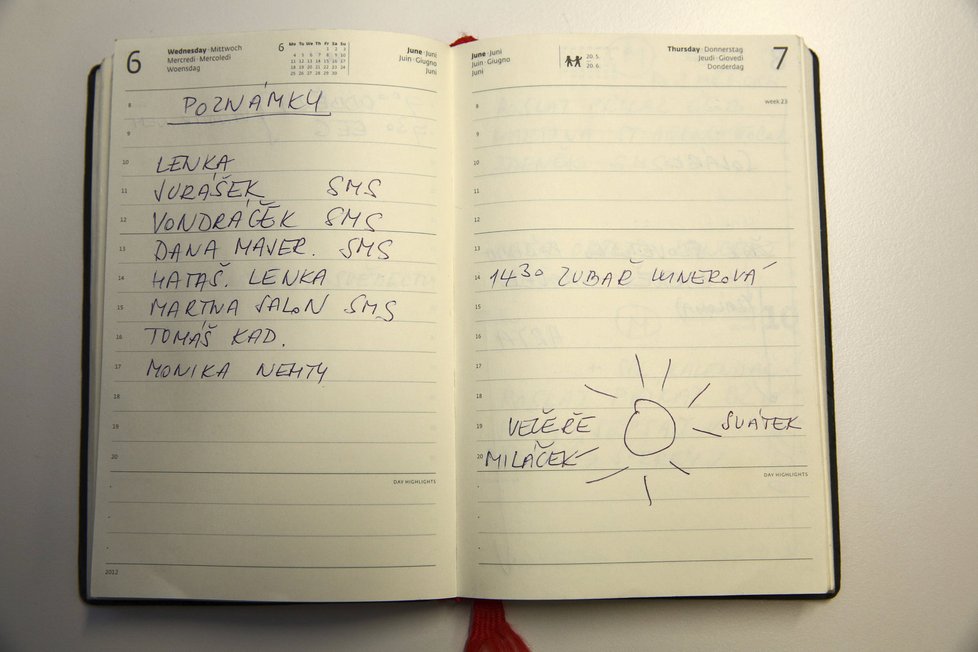 6
Wednesday · Mittwoch
Mercredi · Mercoledì
Woensdag
6 Mo Tu We Th Fr Sa Su
1 2 3
4 5 6 7 8 9 10
11 12 13 14 15 16 17
18 19 20 21 22 23 24
25 26 27 28 29 30
June · Juni
Juin · Giugno
Juni
8
POZNÁMKY
9
10 LENKA
11 JURÁŠEK SMS
12 VONDRÁČEK SMS
13 DANA MAVER. SMS
14 HATAŠ. LENKA
15 MARTINA SALON SMS
16 TOMÁŠ KAD.
17 MONIKA NEHTY
18
19
20
DAY HIGHLIGHTS
2012
June · Juni
Juin · Giugno
Juni
20. 5.
20. 6.
Thursday · Donnerstag
Jeudi · Giovedì
Donderdag
7
week 23
8
9
10
11
12
13
14 14 30 ZUBAŘ
15
16
17
18
19 VEČEŘE SVÁTEK
20 MILÁČEK
DAY HIGHLIGHTS